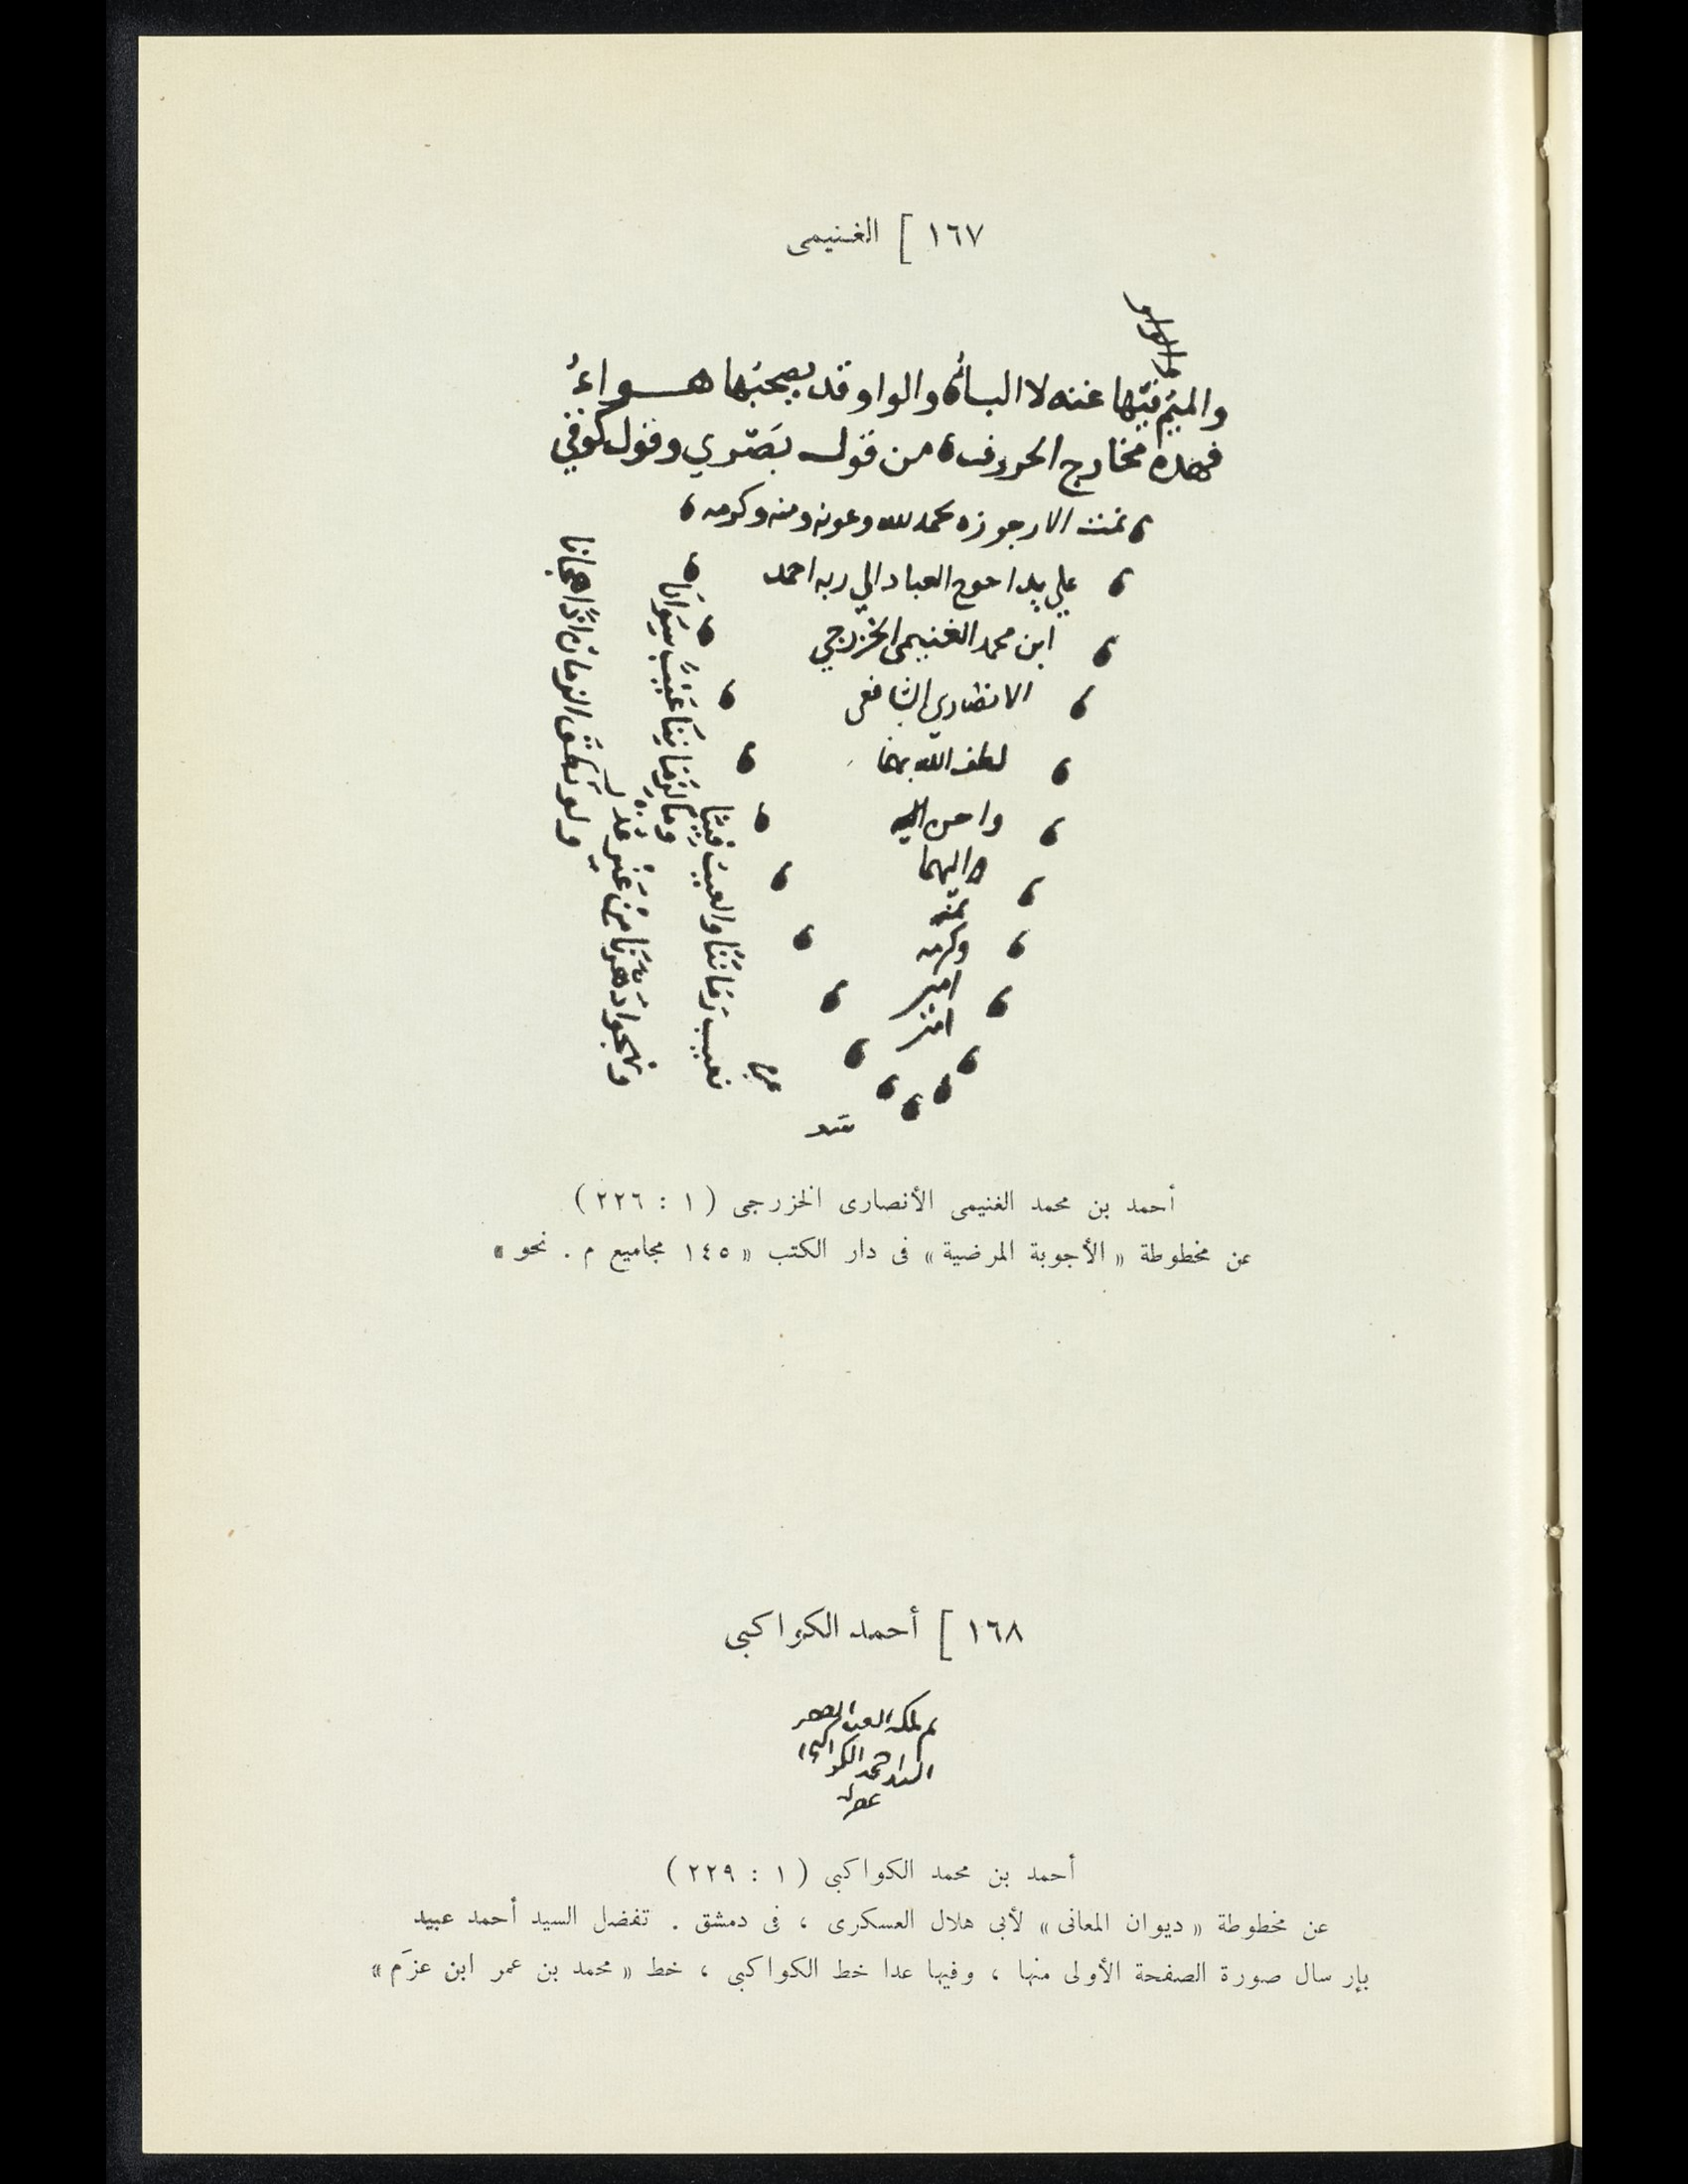 ١٦٧ ] الغنيمى
والميم فيها غنه لا الباء والواو قد يصحبها هواء
فهذه مخارج الحروف من قول بصري وقول كوفي
تمت الارجوزه بحمد الله وعونه ومنه وكرمه
علي يد احوج العباد الي ربه احمد
ابن محمد الغنيمي الخزرجي
الانصاري الشافعي
لطف الله بهما
واحسن
اليهما
بمنه
وكرمه
امين
امين
نعيب زماننا والعيب فينا
وما لزماننا عيب سوانا
ونهجوا دهرنا من غير
ولو نطق الزمان اذا هجانا
أحمد بن محمد الغنيمى الأنصارى الخزرجى ( ١ : ٢٢٦ )
عن مخطوطة « الأجوبة المرضية » فى دار الكتب « ١٤٥ مجاميع م . نحو »
١٦٨ ] أحمد الكواكبى
السيد احمد الكواكبي
أحمد بن محمد الكواكبى ( ١ : ٢٢٩ )
عن مخطوطة « ديوان المعانى » لأبى هلال العسكرى ، فى دمشق . تفضل السيد أحمد عبيد
بإرسال صورة الصفحة الأولى منها ، وفيها عدا خط الكواكبى ، خط « محمد بن عمر ابن عزَم »